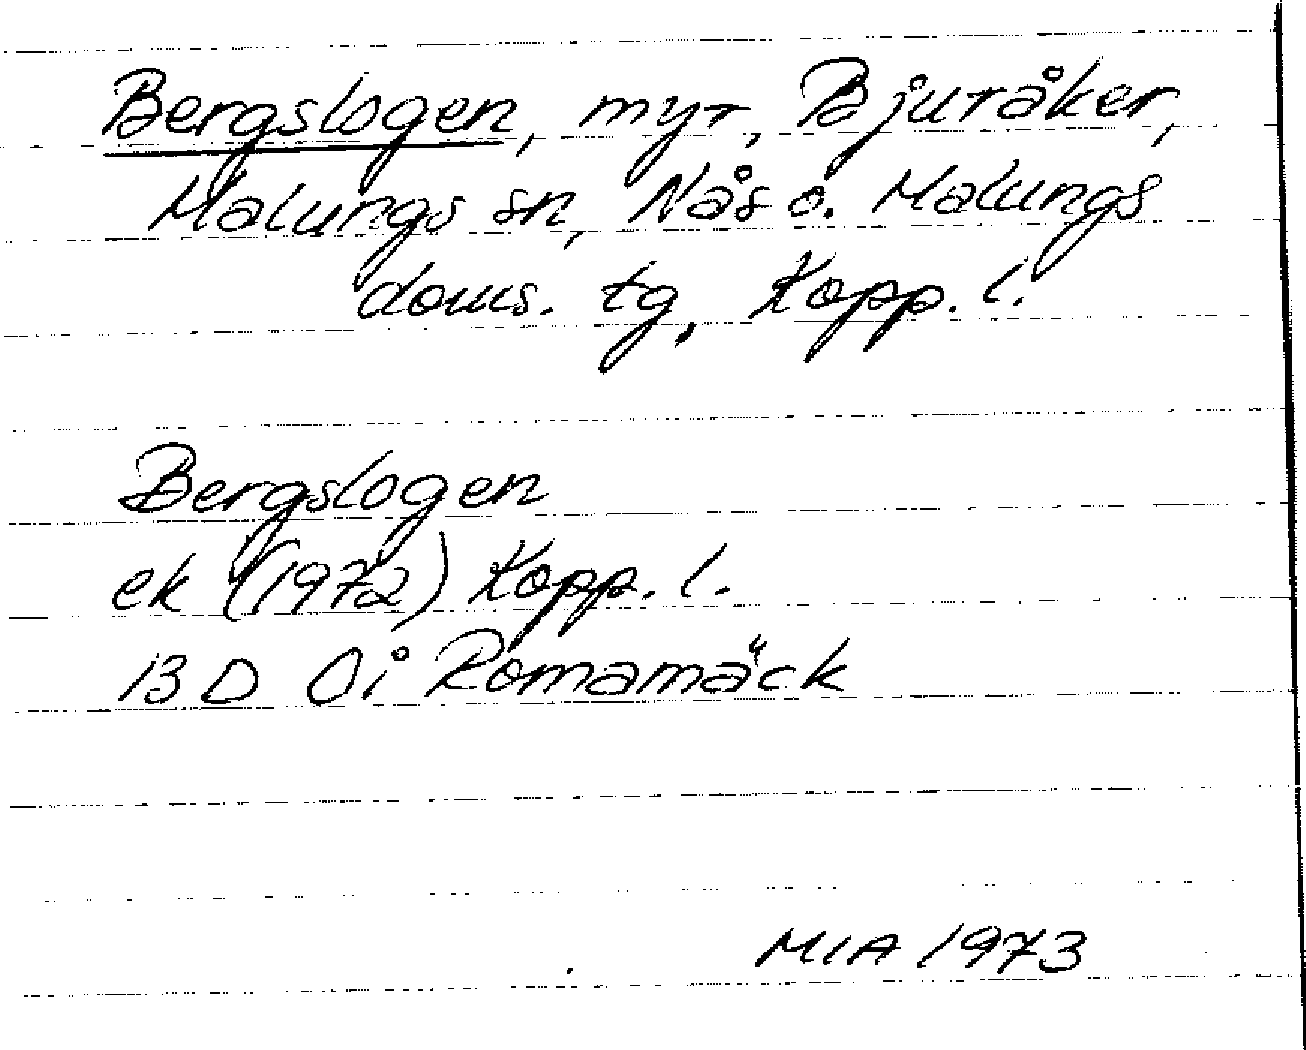 Bergslogen, myr, Bjuråker,
Malungs sn, Nås o. Malungs
doms. tg, Kopp. l.
Bergslogen
ek (1972) Kopp. l.
13 D 0i Romamäck
MIA 1973